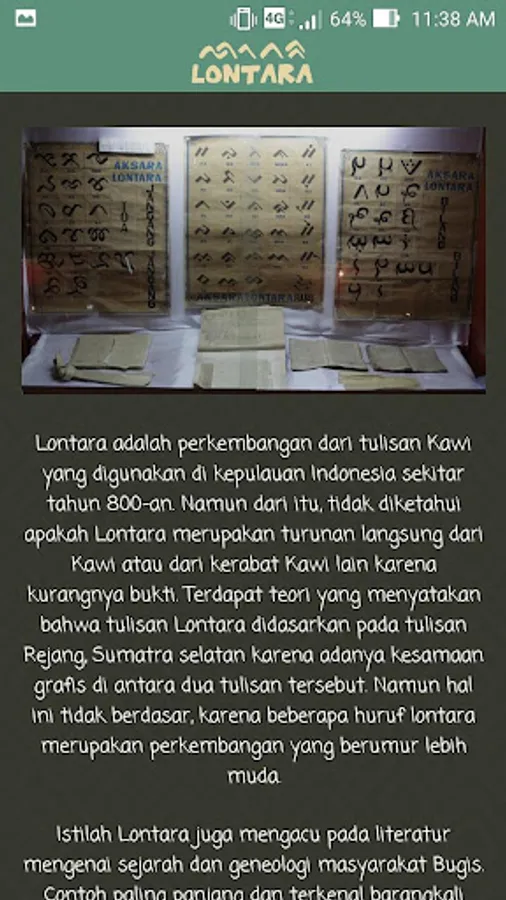 64% 11:38 AM
4G
LONTARA
AKSARA
LONTARA
AKSARA
LONTARA
AKSARA LONTARA
Lontara adalah perkembangan dari tulisan Kawi
yang digunakan di kepulauan Indonesia sekitar
tahun 800-an. Namun dari itu, tidak diketahui
apakah Lontara merupakan turunan langsung dari
Kawi atau dari kerabat Kawi lain karena
kurangnya bukti. Terdapat teori yang menyatakan
bahwa tulisan Lontara didasarkan pada tulisan
Rejang, Sumatra selatan karena adanya kesamaan
grafis di antara dua tulisan tersebut. Namun hal
ini tidak berdasar, karena beberapa huruf lontara
merupakan perkembangan yang berumur lebih
muda.
Istilah Lontara juga mengacu pada literatur
mengenai sejarah dan geneologi masyarakat Bugis.
Contoh paling panjang dan terkenal barangkali